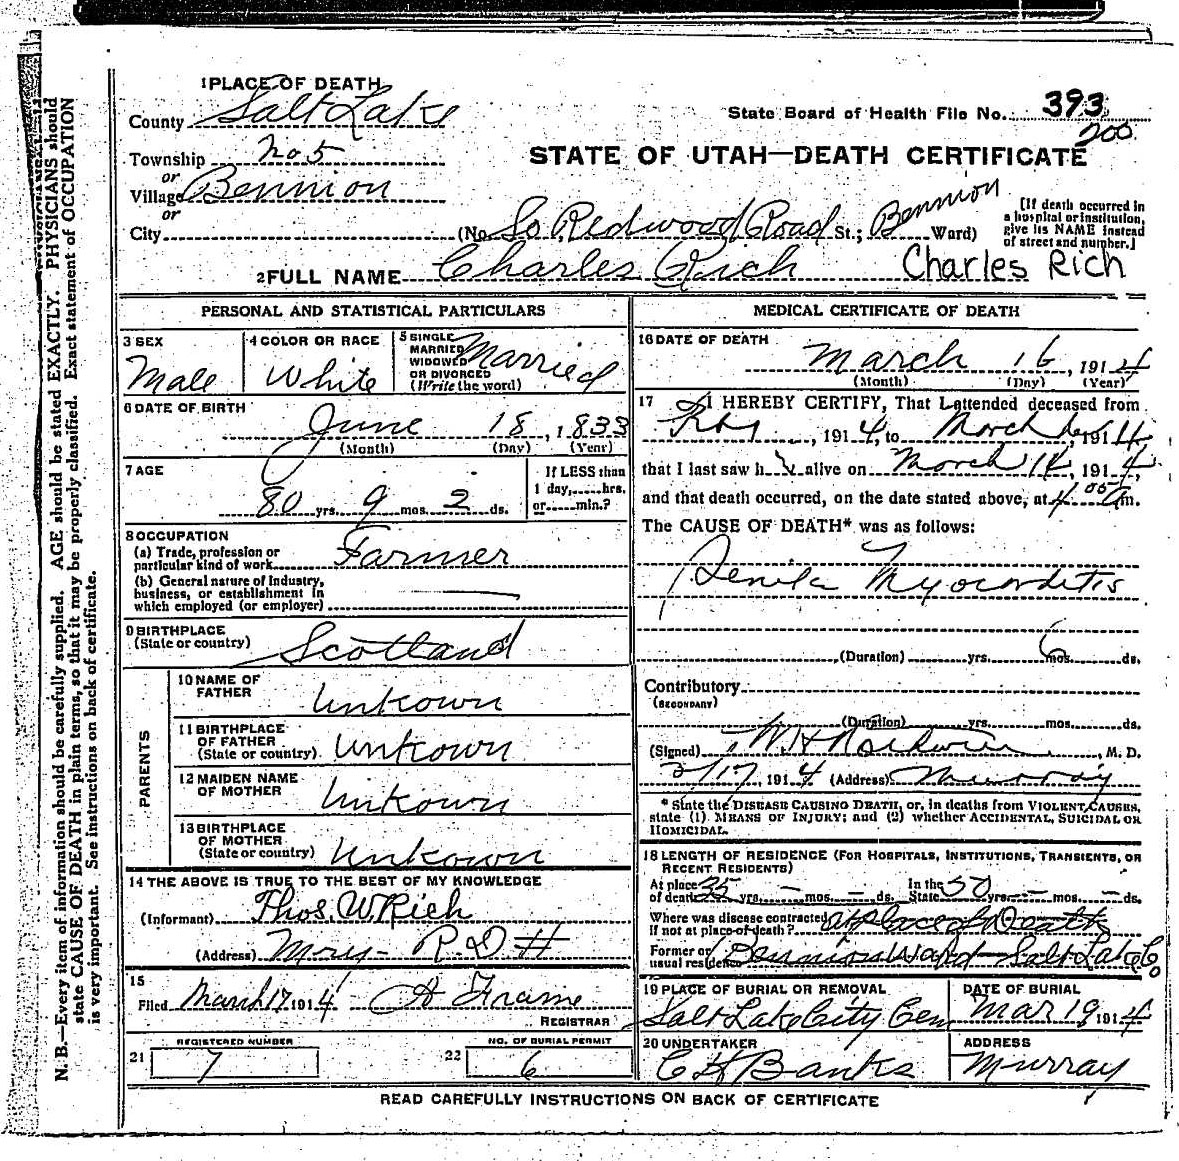 1 PLACE OF DEATH
County Salt Lake
State Board of Health File No. 393
200
Township No 5
STATE OF UTAH—DEATH CERTIFICATE
or
Village Bennion
or
City (No. So Redwood Road St.; Bennion Ward)
[If death occurred in
a hospital or institution,
give its NAME instead
of street and number.]
2 FULL NAME Charles Rich Charles Rich
PERSONAL AND STATISTICAL PARTICULARS
3 SEX
Male
4 COLOR OR RACE
White
5 SINGLE
MARRIED
WIDOWED
OR DIVORCED
(Write the word)
Married
6 DATE OF BIRTH
June 18, 1833
(Month) (Day) (Year)
7 AGE
80 yrs. 9 mos. 2 ds.
If LESS than
1 day,.....hrs.
or.....min.?
8 OCCUPATION
(a) Trade, profession or
particular kind of work Farmer
(b) General nature of Industry,
business, or establishment in
which employed (or employer)
9 BIRTHPLACE
(State or country) Scotland
PARENTS
10 NAME OF
FATHER Unkown
11 BIRTHPLACE
OF FATHER
(State or country) Unkown
12 MAIDEN NAME
OF MOTHER Unkown
13 BIRTHPLACE
OF MOTHER
(State or country) Unkown
14 THE ABOVE IS TRUE TO THE BEST OF MY KNOWLEDGE
(Informant) Thos. W Rich
(Address) Mury - R. D #
15
Filed March 17 1914 A Frame
REGISTRAR
21 REGISTERED NUMBER
7
22 NO. OF BURIAL PERMIT
6
MEDICAL CERTIFICATE OF DEATH
16 DATE OF DEATH
March 16, 1914
(Month) (Day) (Year)
17 I HEREBY CERTIFY, That I attended deceased from
, 1914, to March 1914,
that I last saw h alive on March 14, 1914,
and that death occurred, on the date stated above, at 4 00 a m.
The CAUSE OF DEATH* was as follows:
Senile Myocarditis
(Duration) yrs. 6 mos. ds.
Contributory
(SECONDARY)
(Duration) yrs. mos. ds.
(Signed) M. D.
3/17, 1914 (Address) Murray
* State the DISEASE CAUSING DEATH, or, in deaths from VIOLENT CAUSES,
state (1) MEANS OF INJURY; and (2) whether ACCIDENTAL, SUICIDAL OR
HOMICIDAL.
18 LENGTH OF RESIDENCE (FOR HOSPITALS, INSTITUTIONS, TRANSIENTS, OR
RECENT RESIDENTS)
At place of death 35 yrs. – mos. – ds. In the State 50 yrs. – mos. – ds.
Where was disease contracted
If not at place of death? at place of Death
Former or
usual residence Bennion Ward - Salt Lake Co
19 PLACE OF BURIAL OR REMOVAL
Salt Lake City Cem
DATE OF BURIAL
Mar 19, 1914
20 UNDERTAKER
C H Banks
ADDRESS
Murray
READ CAREFULLY INSTRUCTIONS ON BACK OF CERTIFICATE
N. B.—Every item of information should be carefully supplied. AGE should be stated EXACTLY. PHYSICIANS should
state CAUSE OF DEATH in plain terms, so that it may be properly classified. Exact statement of OCCUPATION
is very important. See instructions on back of certificate.